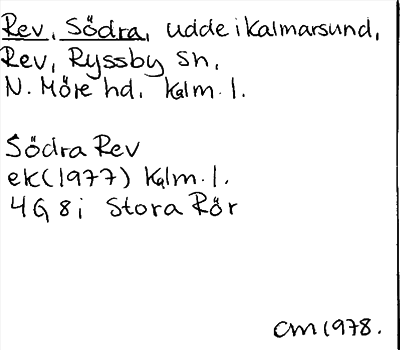 Rev, Södra, udde i Kalmarsund,
Rev, Ryssby sn,
N. Möre hd. Kalm. l.
Södra Rev
ek (1977) Kalm. l.
4G 8i Stora Rör
CM 1978.